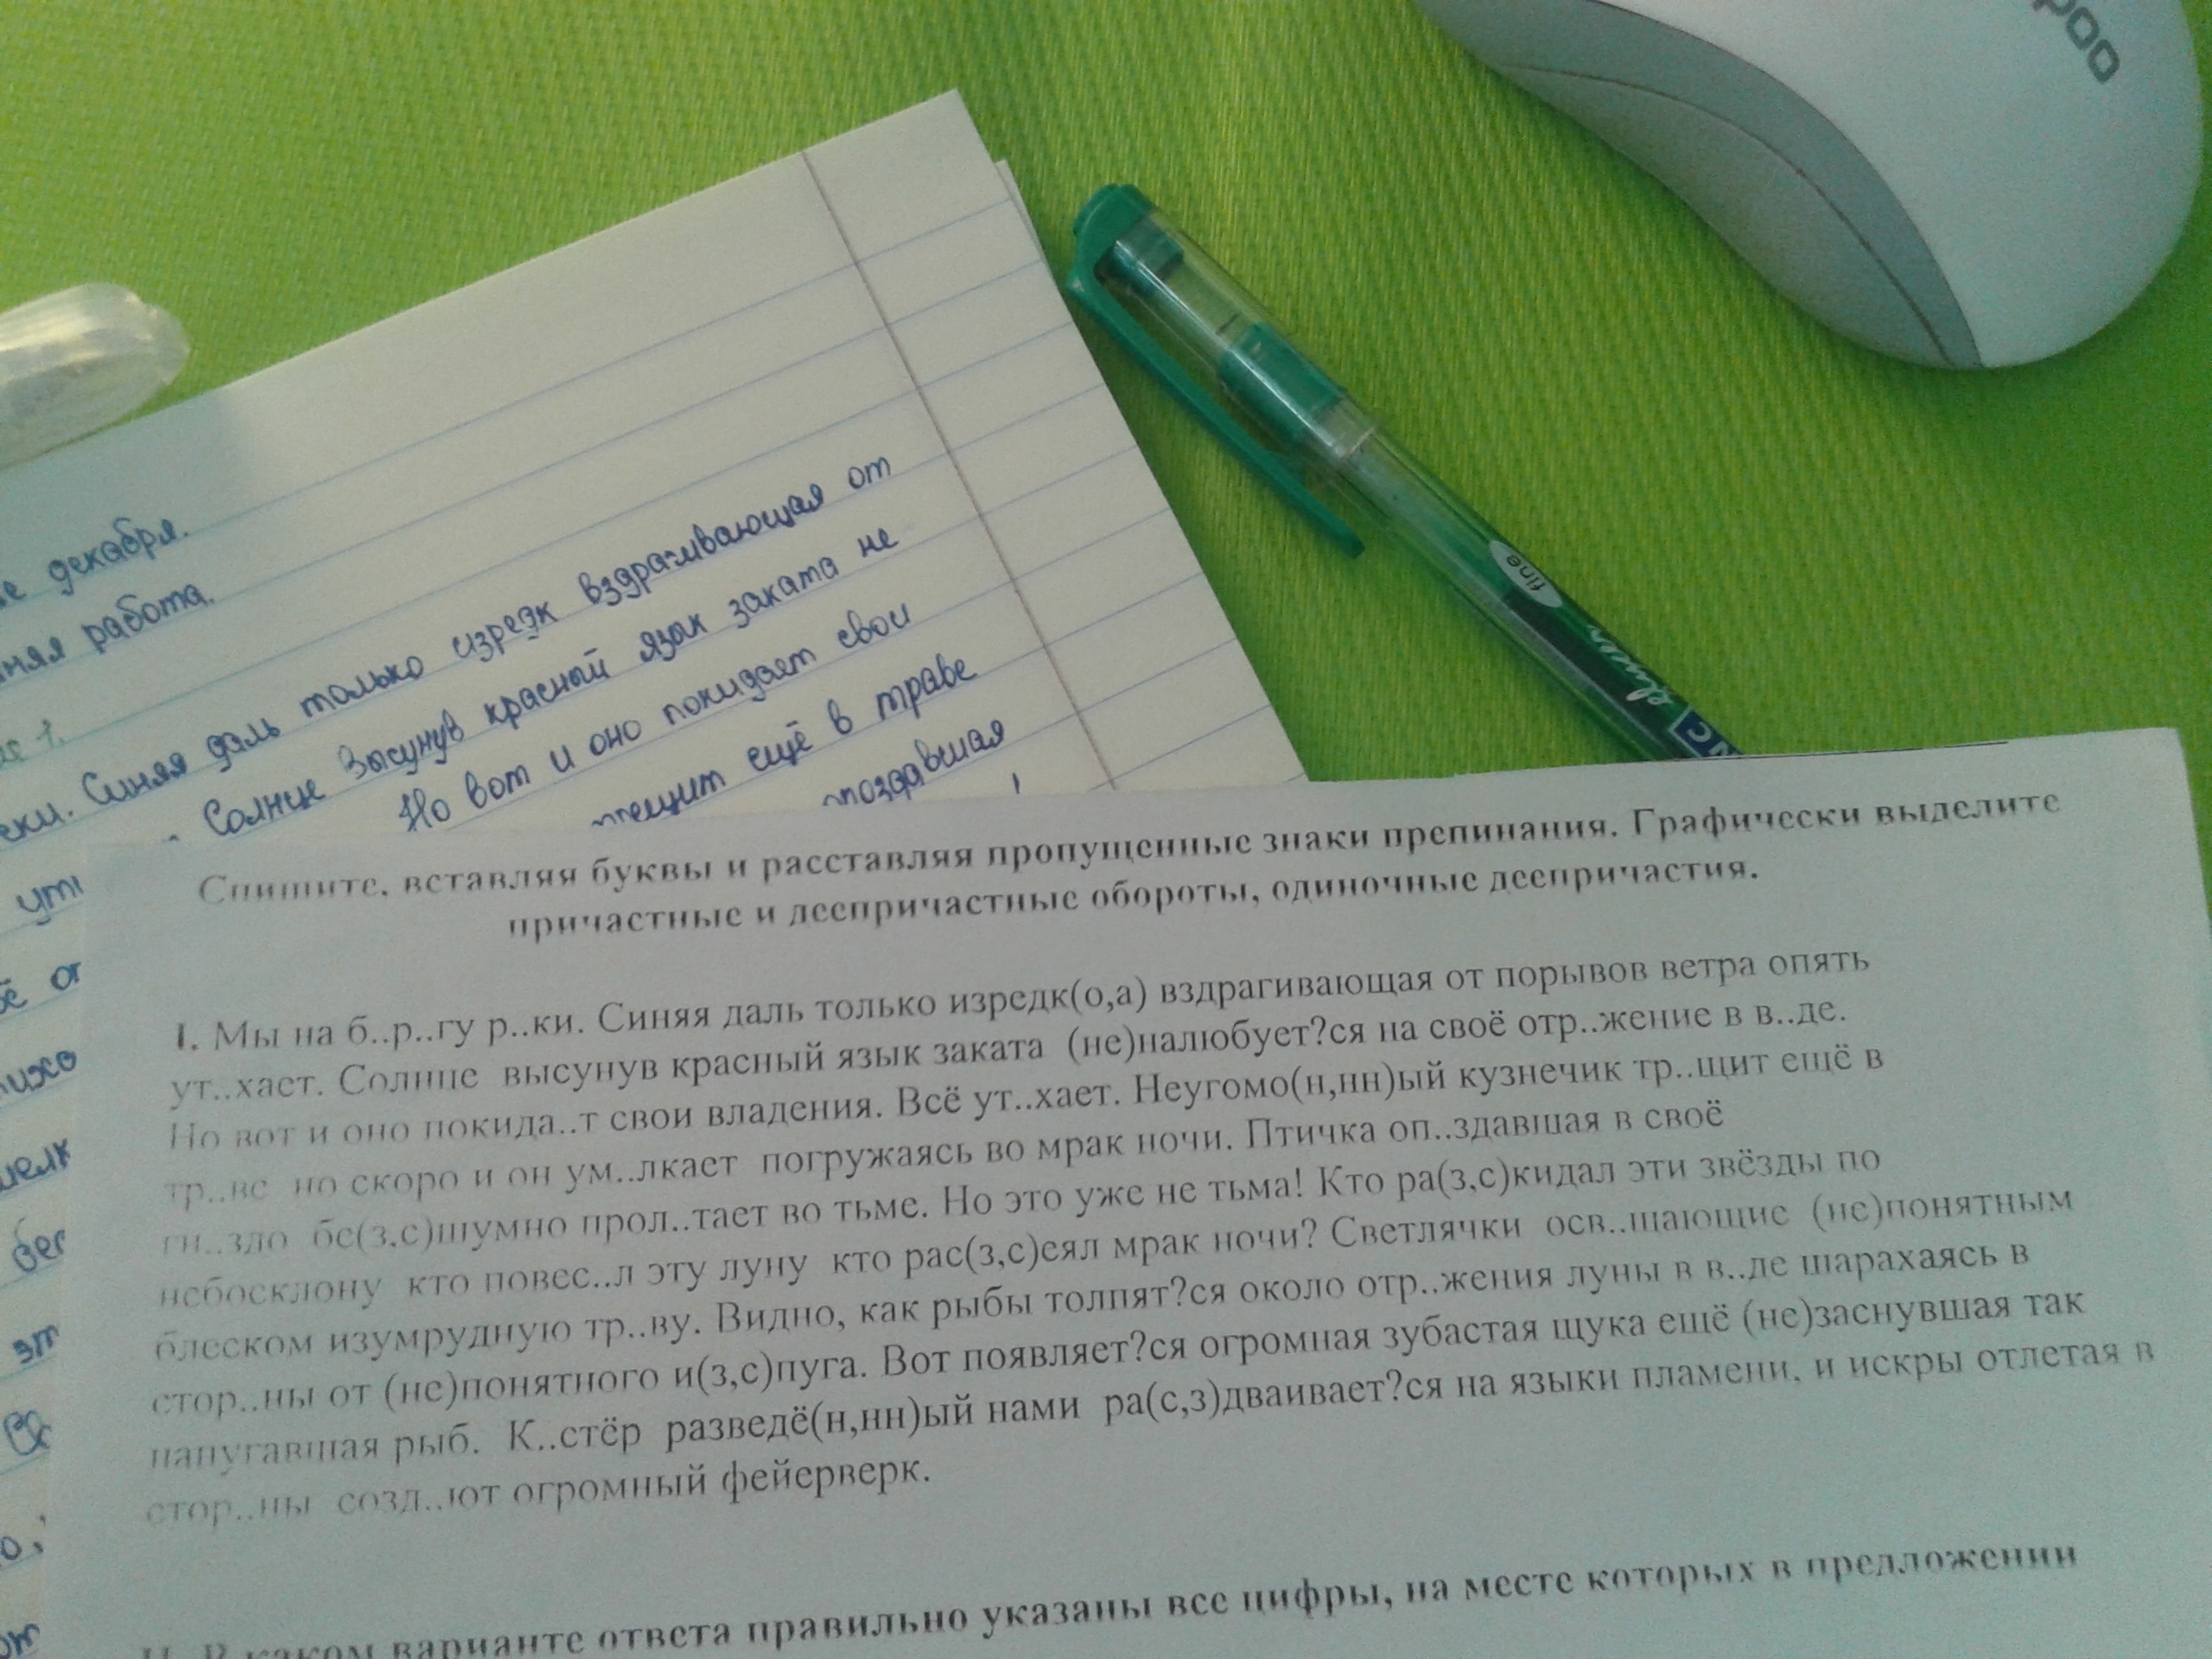 poo
fine
е декабря.
няя работа.
е 1.
еки. Синяя даль только изредк вздрагивающая от
Солнце высунув красный язык заката не
Но вот и оно покидает свои
трещит ещё в траве
поздавшая
Спишите, вставляя буквы и расставляя пропущенные знаки препинания. Графически выделите
причастные и деепричастные обороты, одиночные деепричастия.
I. Мы на б..р..гу р..ки. Синяя даль только изредк(о,а) вздрагивающая от порывов ветра опять
ут..хает. Солнце высунув красный язык заката (не)налюбует?ся на своё отр..жение в в..де.
Но вот и оно покида..т свои владения. Всё ут..хает. Неугомо(н,нн)ый кузнечик тр..щит ещё в
тр..ве но скоро и он ум..лкает погружаясь во мрак ночи. Птичка оп..здавшая в своё
гн..здо бе(з,с)шумно прол..тает во тьме. Но это уже не тьма! Кто ра(з,с)кидал эти звёзды по
небосклону кто повес..л эту луну кто рас(з,с)еял мрак ночи? Светлячки осв..щающие (не)понятным
блеском изумрудную тр..ву. Видно, как рыбы толпят?ся около отр..жения луны в в..де шарахаясь в
стор..ны от (не)понятного и(з,с)пуга. Вот появляет?ся огромная зубастая щука ещё (не)заснувшая так
напугавшая рыб. К..стёр разведё(н,нн)ый нами ра(с,з)дваивает?ся на языки пламени, и искры отлетая в
стор..ны созд..ют огромный фейерверк.
II. В каком варианте ответа правильно указаны все цифры, на месте которых в предложении